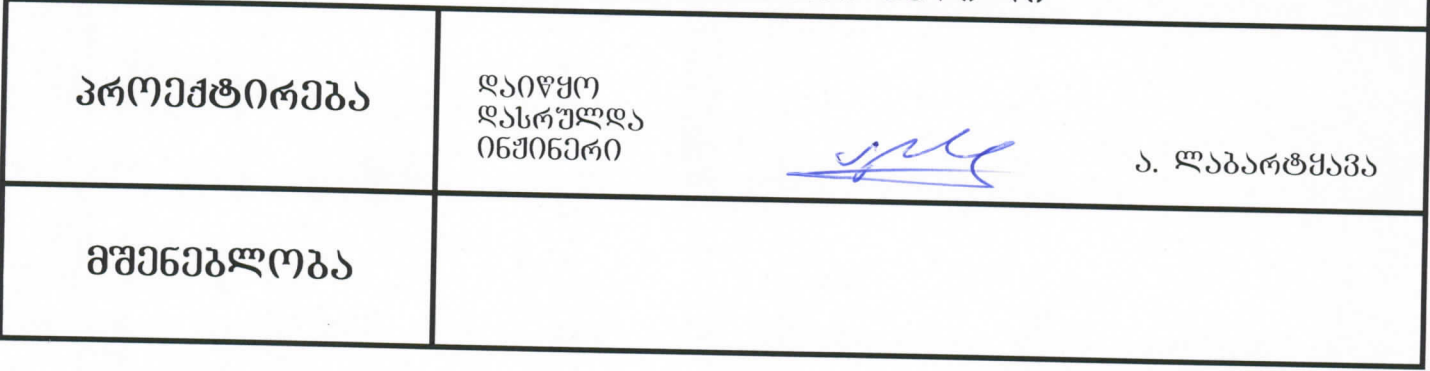 პროექტირება
დაიწყო
დასრულდა
ინჟინერი
ა. ლაბარტყავა
მშენებლობა